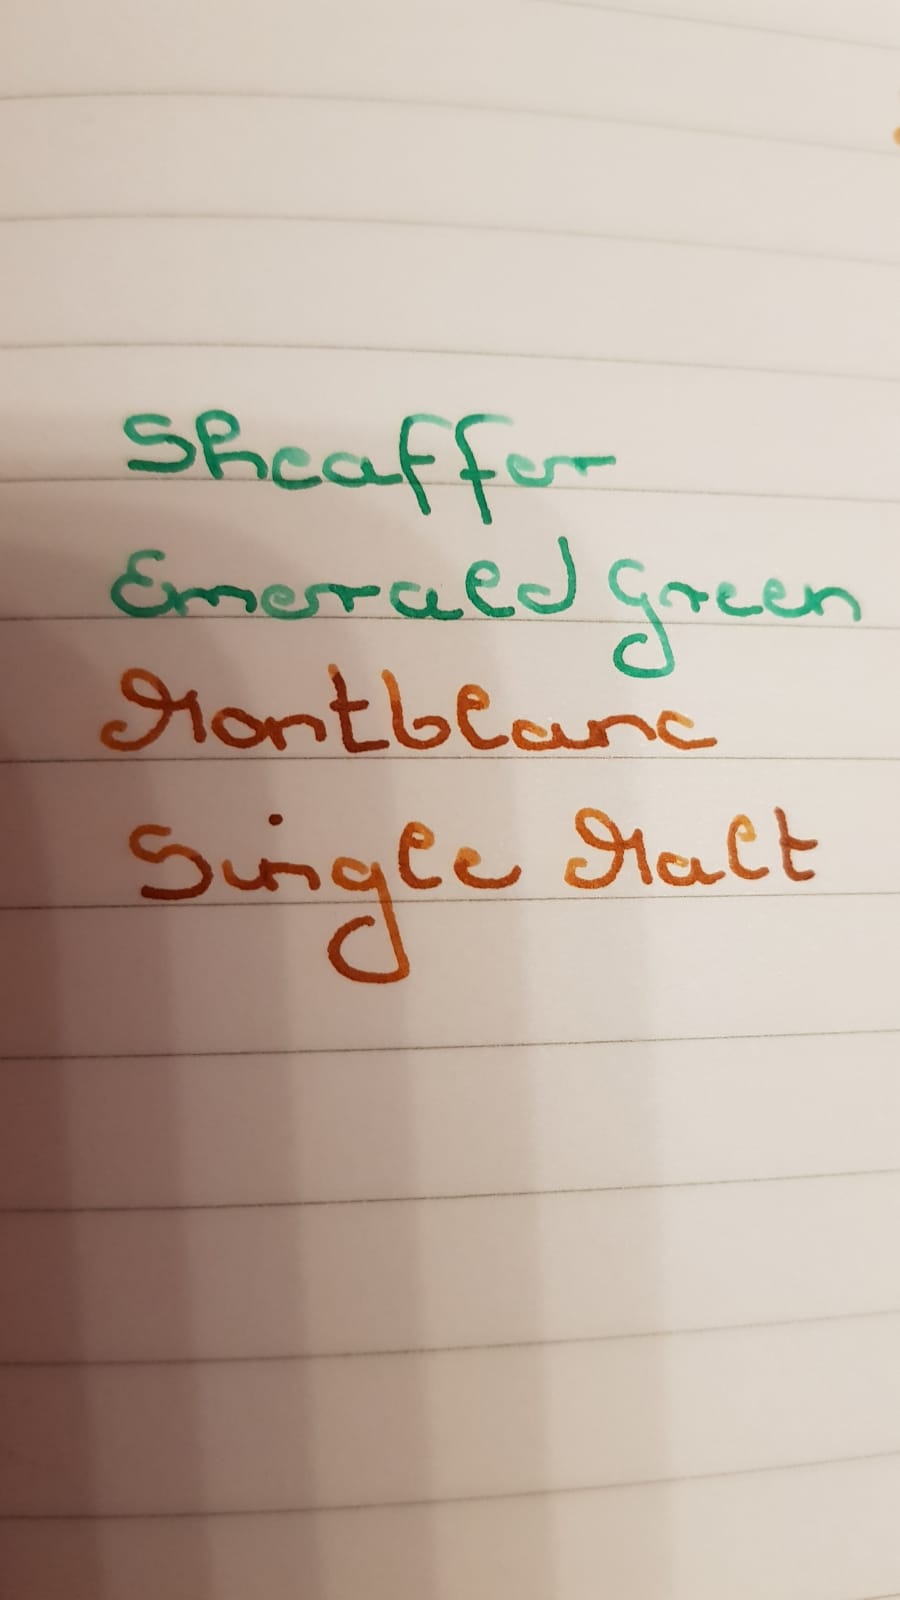 Sheaffer
Emerald Green
Montblanc
Single Malt